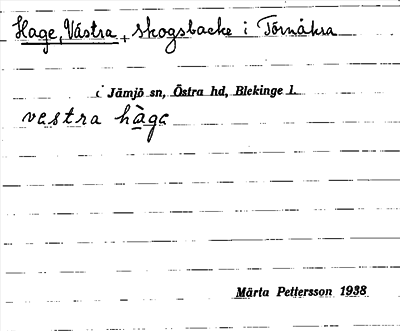 Hage, Västra, skogsbacke i Törnåkra
i Jämjö sn, Östra hd, Blekinge l.
vestra hàge
Märta Pettersson 1938